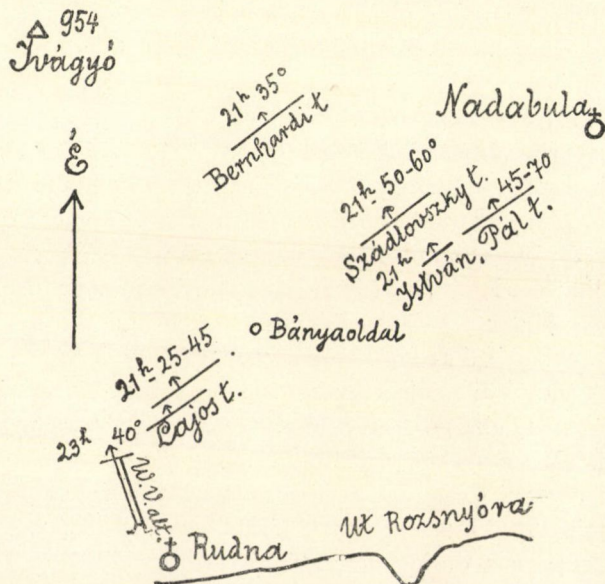 954
Ivágyó
É
21ʰ 35°
Bernhardi t
Nadabula
21ʰ 50-60°
Szádlovszky t.
21ʰ 45-70
István, Pál t.
Bányaoldal
21ʰ 25-45
Lajos t.
23ʰ 40°
W.V. alt.
Rudna
Ut Rozsnyóra